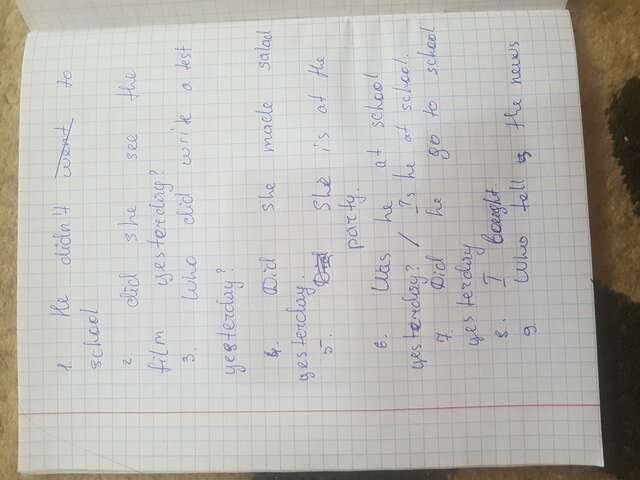 1. He didn't went to
school
2 did she see the
film yesterday?
3. Who did write a test
yesterday?
4. Did she made salad
yesterday.
5. She is at the
party.
6. Was he at school
yesterday? / Is he at school.
7. Did he go to school
yesterday
8. I bought.
9. Who tell the news